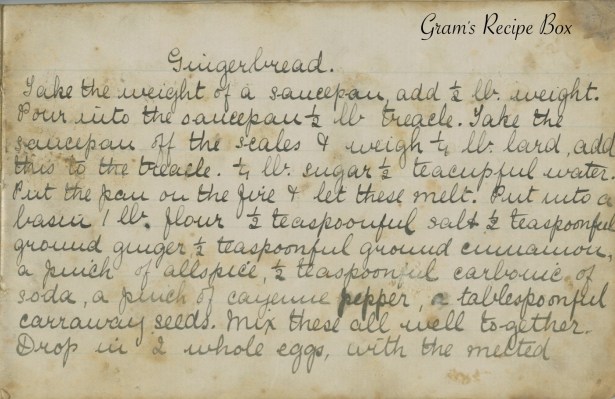 Gram's Recipe Box
Gingerbread.
Take the weight of a saucepan, add ½ lb. weight.
Pour into the saucepan ½ lb treacle. Take the
saucepan off the scales & weigh ¼ lb. lard, add
this to the treacle. ¼ lb. sugar ½ teacupful water.
Put the pan on the fire & let these melt. Put into a
basin 1 lb. flour ½ teaspoonful salt ½ teaspoonful
ground ginger ½ teaspoonful ground cinnamon,
a pinch of allspice, ½ teaspoonful carbonic of
soda, a pinch of cayenne pepper, a tablespoonful
carraway seeds. Mix these all well together.
Drop in 2 whole eggs, with the melted